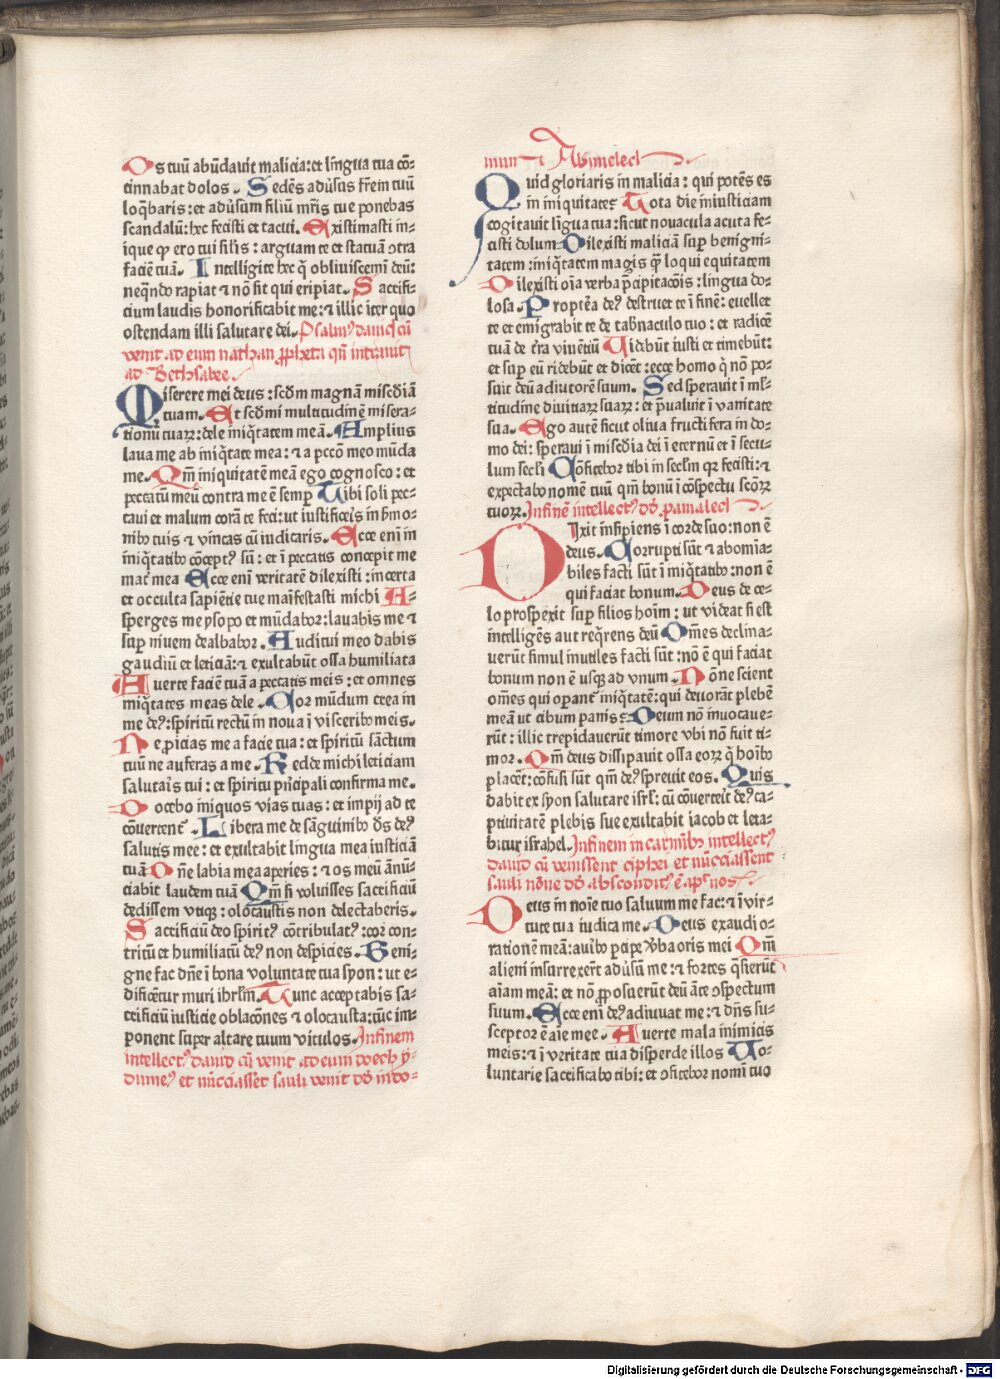 Os tuū abūdavit malicia: et līngua tua cō-
cinnabat dolos. Sedēs adūsus frēm tuū
loq̄baris: et adūsum filiū mr̄is tue ponebas
scandalū: hec fecisti et tacui. Existimasti in-
ique ꝙ ero tui similis: arguam te et statuā ↄtra
faciē tuā. Intelligite hec q̄ obliuiscemī deū:
neqn̄do rapiat ⁊ nō sit qui eripiat. Sacrifi-
cium laudis honorificabit me: ⁊ illic iter quo
ostendam illi salutare dei. Psalmꝰ dauid cū
venit ad eum nathan ꝓpheta qn̄ intrauit
ad Bethsabee.
Miserere mei deus: scd̄m magnā miscd̄iā
tuam. Et scd̄m multitudinē misera-
tionū tuaꝝ: dele iniq̄tatem meā. Amplius
laua me ab iniq̄tate mea: ⁊ a pccō meo mūda
me. Qm̄ iniquitatē meā ego cognosco: et
peccatū meū contra me ē semp̄ Tibi soli pec-
caui et malum corā te feci: ut iustificer̄s in ẜmo-
nibꝰ tuis ⁊ vincas cū iudicaris. Ecce enī in
iniq̄tatibꝰ ↄceptꝰ sū: et ī peccatis concepit me
mat̄ mea Ecce enī veritatē dilexisti: incerta
et occulta sapiētie tue maīfestasti michi A-
sperges me ysopo et mūdabor: lauabis me ⁊
sup̄ niuem dealbabor. Auditui meo dabis
gaudiū et leticiā: ⁊ exultabūt ossa humiliata
Auerte faciē tuā a peccatis meis: et omnes
miq̄tates meas dele. Cor mūdum crea in
me deꝰ: spiritū rectū in noua ī visceribꝰ meis.
Ne proicias me a facie tua: et spiritū sāctum
tuū ne auferas a me. Redde michi leticiam
salutar̄s tui: et spiritu pn̄cipali confirma me.
Docebo iniquos vias tuas: et impij ad te
cōuertent̄. Libera me de sāguinibꝰ ds̄ deꝰ
salutis mee: et exultabit lingua mea iusticiā
tuā Dn̄e labia mea aperies: ⁊ os meū ānū-
ciabit laudem tuā Qm̄ si voluisses sacrificiū
dedissem vtiqꝫ: olocaustis non delectaberis.
Sacrificiū deo spiritꝰ cōtribulatꝰ: cor con-
tritū et humiliatū deꝰ non despicies. Beni-
gne fac dn̄e ī bona voluntate tua syon: ut e-
dificent̄ muri ihrlm̄. Tunc acceptabis sa-
crificiū iusticie oblacōnes ⁊ olocausta: tūc im-
ponent super altare tuum vitulos. Infinem
intellectꝰ dauid cū venit ad eum doech y-
dumeꝰ et nūciasset sauli venit dd̄ in do-
mum Abimelech
Quid gloriaris in malicia: qui potēs es
in iniquitate Tota die iniusticiam
cogitauit līgua tua: sicut nouacula acuta fe-
cisti dolum Dilexisti maliciā sup̄ benigni-
tatem: iniq̄tatem magis q̄̄ loqui equitatem
Dilexisti oīa verba p̄cipitacōis: līngua do-
losa. Proptēa deꝰ destruet te ī finē: euellet
te et emigrabit te de tab̄naculo tuo: et radicē
tuā de t̄ra viuētiū Videbūt iusti et timebūt:
et sup̄ eū ridebūt et dicēt: ecce homo q̄ nō po-
suit deū adiutorē suum. Sed sperauit ī ml̄-
titudine diuiciaꝝ suaꝝ: et p̄ualuit ī vanitate
sua. Ego autē sicut oliua fructifera in do-
mo dei: speraui ī miscd̄ia dei ī eternū et ī secu-
lum secl̄i Cōfitebor tibi in secl̄m qꝛ fecisti: ⁊
expectabo nomē tuū qm̄ bonū ī ↄspectu scōꝝ
tuoꝝ. Infinē intellectꝰ dd̄ p̄ amalech
Dixit insipiens ī corde suo: non ē
deus. Corrupti sūt ⁊ abomia-
biles facti sūt ī iniq̄tatibꝰ: non ē
qui faciat bonum. Deus de ce-
lo prospexit sup̄ filios hoīm: ut videat si est
intelligēs aut req̄rens deū Om̄es declina-
uerūt simul inutiles facti sūt: nō ē qui faciat
bonum non ē usqꝫ ad vnum. Nōne scient
om̄es qui operant̄ iniq̄tatē: qui deuorāt plebē
meā ut cibum panis: Deum nō inuocaue-
rūt: illic trepidauerūt timore vbi nō fuit ti-
mor. Qm̄ deus dissipauit ossa eoꝝ q̄ hoībꝰ
placēt: confusi sūt qm̄ deꝰ spreuit eos. Quis
dabit ex syon salutare isrl̄: cū cōuerteīt deꝰ ca-
ptiuitatē plebis sue exultabit iacob et leta-
bitur israhel. Infinem in carminibꝰ intellectꝰ
dauid cū venissent ciphei et nūciassent
sauli nōne dd̄ absconditꝰ ē apꝰ nos
Deus in noīe tuo saluum me fac: ⁊ ī vir-
tute tua iudica me. Deus exaudi o-
rationē meā: aurībꝰ p̄cipe v̄ba oris mei Qm̄
alieni insurrexer̄t adūsū me: ⁊ fortes q̄sierūt
aīam meā: et nō ꝓposuerūt deū āte ↄspectum
suum. Ecce enī deꝰ adiuuat me: ⁊ dn̄s su-
sceptor ē aīe mee. Auerte mala inimicis
meis: ⁊ ī veritate tua disperde illos Vo-
luntarie sacrificabo tibi: et ↄfitebor nomī tuo
Digitalisierung gefördert durch die Deutsche Forschungsgemeinschaft - DFG